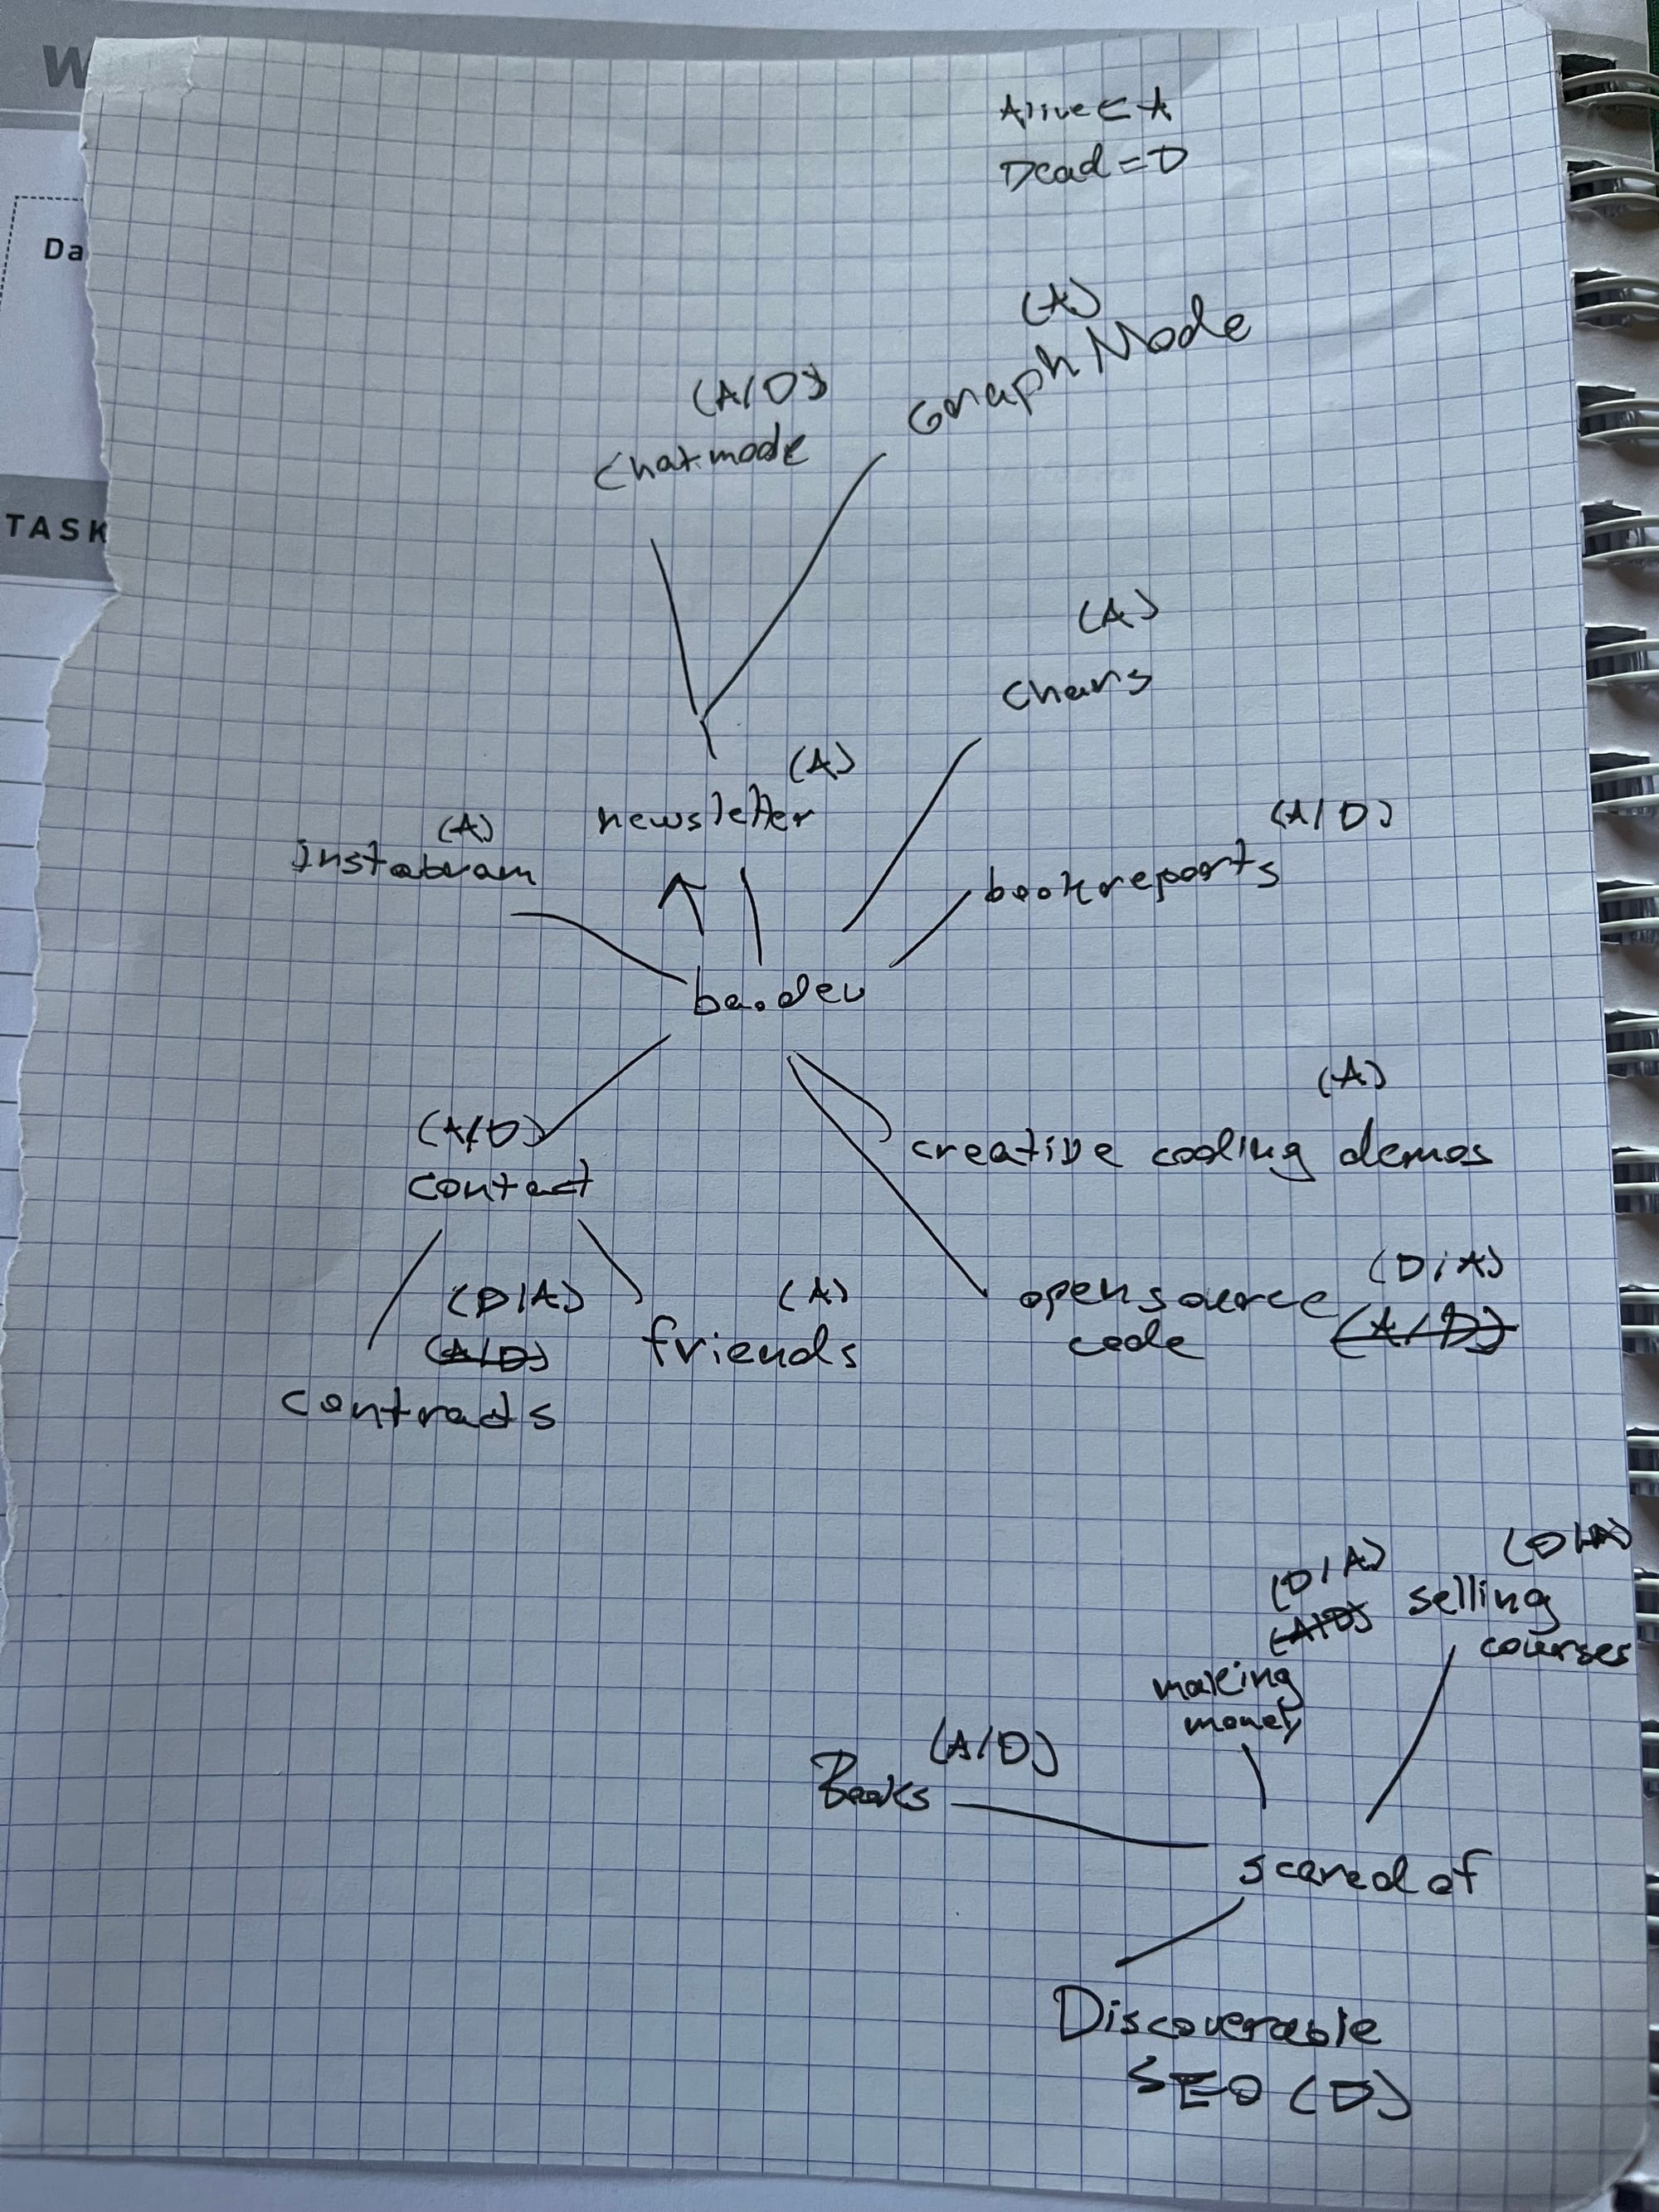 W
Da
TASK
Alive = A
Dead = D
(A)
Graph Mode
(A/D)
chatmode
(A)
(A)
newsletter
(A)
instagram
(A/D)
bookreports
ba.dev
(A)
creative coding demos
(A/D)
contact
(D/A)
opensource (A/D)
code
(D/A)
(A/D)
contracts
(A)
friends
(D/A)
selling
courses
(D/A)
(A/D)
making
money
(A/D)
Books
scared of
Discoverable
SEO (D)